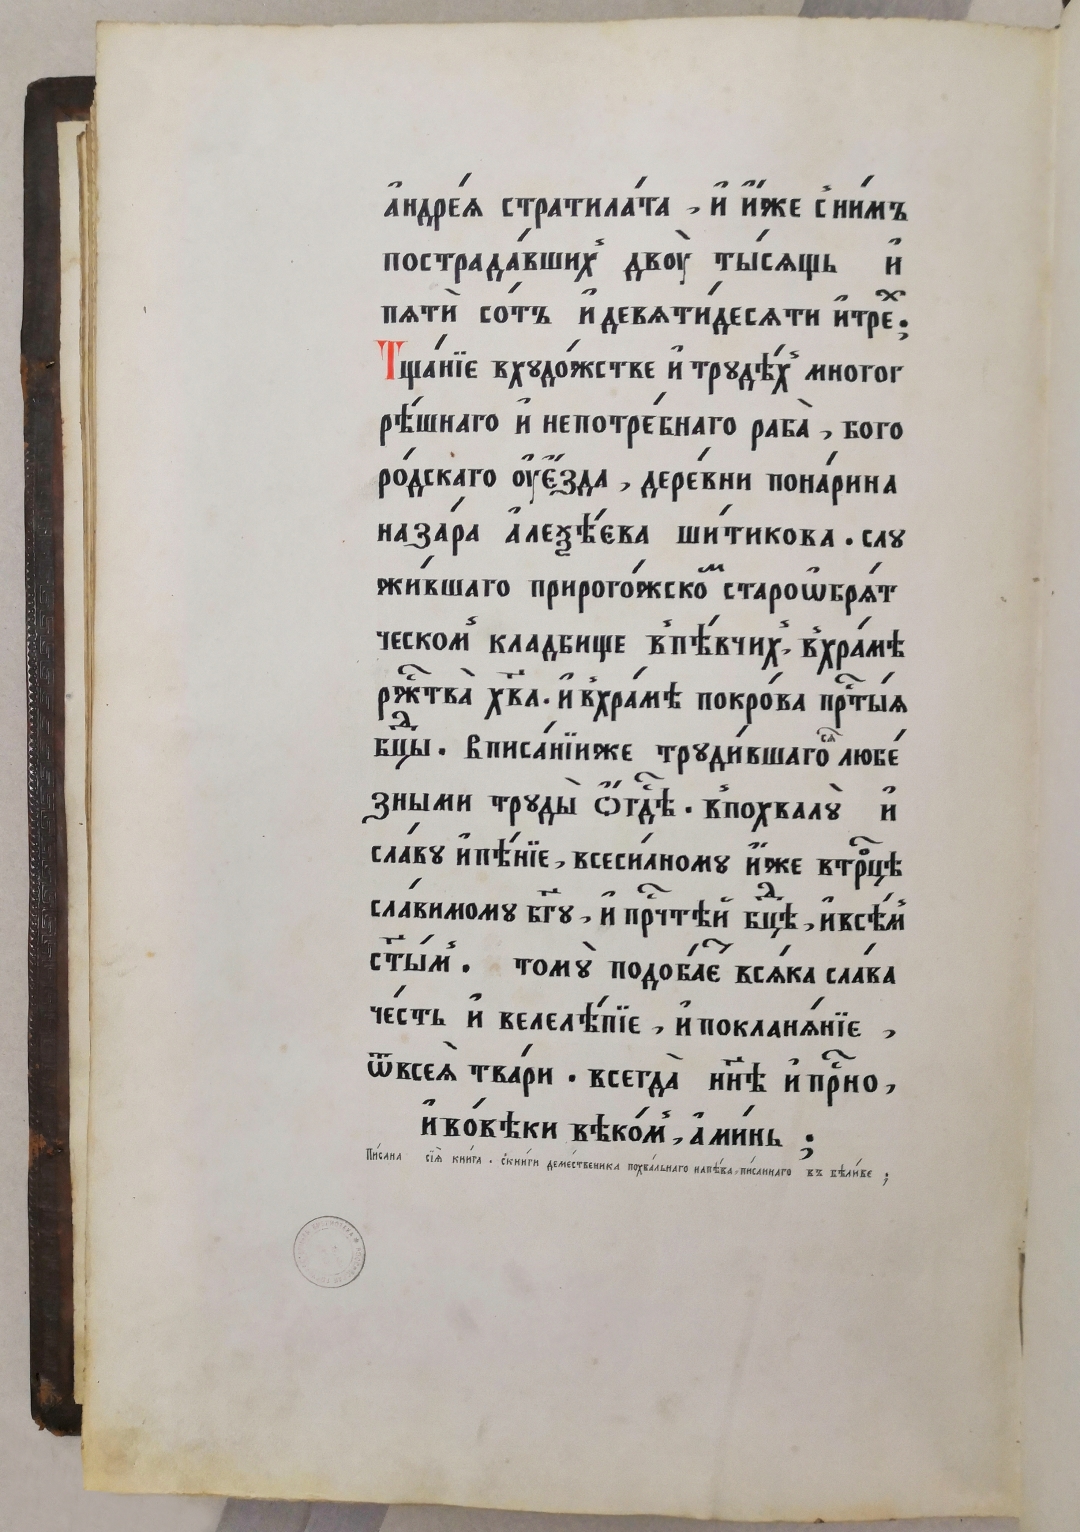 а҆ндре́ѧ стратила́та , и҆ и҆́же с ни́мъ
пострада́вших двоу̀ ты́сѧщь и҆
пѧтѝ со́тъ и҆ девѧти́десѧти и҆ трех ;
Тща́нїе в худо́жстве и҆ труде́х многог
рѣ́шнаго и҆ непотре́бнаго раба̀ , бого
ро́дскаго оу҆є҆́зда , дере́вни пона́рина
наза́ра а҆леѯѣ́ева ши́тикова . слу
жи́вшаго при рого́жском староѡбрѧ́т
ческом кладбище в пѣ́вчих , в хра́мѣ
рж҃ства̀ хв҃а . и҆ в хра́мѣ покро́ва прⷭ҇ты́ѧ
бцⷣы . в писа́нїи же труди́вшагосѧ любе́
зными труды̀ ѻ҆́гдⷭ҇ѣ . в похвалу̀ и҆
славу и҆ пѣ́нїе , всеси́лному и҆́же в трⷪ҇цѣ
сла́вимому бг҃у , и҆ прⷭ҇чтѣй бцⷣѣ , и҆ всѣ́м
ст҃ы́м . тому̀ подоба́єт всѧ́ка сла́ва
че́сть и҆ велелѣ́пїе , и҆ поклана́нїе ,
ѿ всеѧ̀ тва́ри . всегда̀ нн҃ѣ и҆ прⷭ҇но ,
и҆ во́ вѣки вѣко́м , а҆ми́нь ;
Пи́сана сїѧ̀ кни́га . с кни́ги деме́ственика похва́льнаго напѣ́ва , пи́саннаго въ